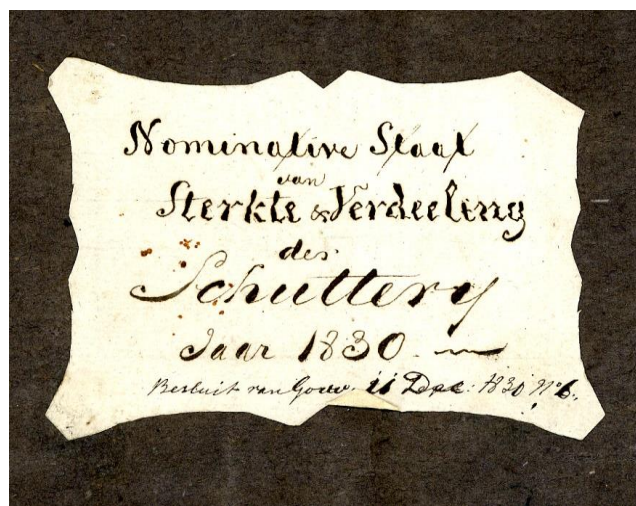 Nominative Staat
van
Sterkte & Verdeeling
der
Schuttery
Jaar 1830.
Besluit van Gouv. 11 Dec: 1830 No 6.